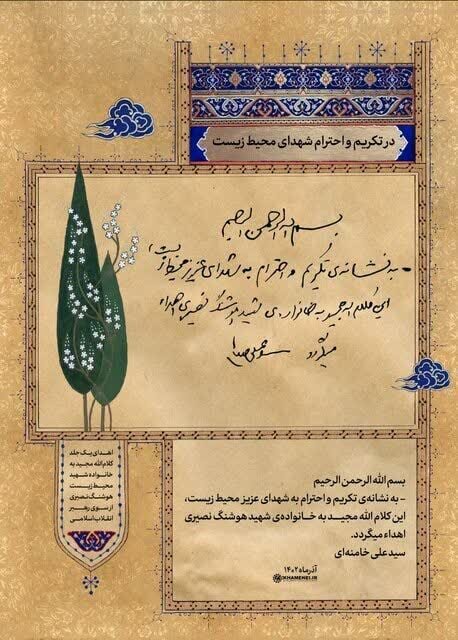 در تکریم و احترام شهدای محیط زیست
بسم الله الرحمن الرحیم
- به نشانه‌ی تکریم و احترام به شهدای عزیز محیط زیست،
این کلام الله مجید به خانواده‌ی شهید هوشنگ نصیری اهداء
میگردد سیدعلی خامنه‌ای
اهدای یک جلد
کلام الله مجید به
خانواده شهید
محیط زیست
هوشنگ نصیری
از سوی رهبر
انقلاب اسلامی
بسم الله الرحمن الرحیم
- به نشانه‌ی تکریم و احترام به شهدای عزیز محیط زیست،
این کلام الله مجید به خانواده‌ی شهید هوشنگ نصیری
اهداء میگردد.
سیدعلی خامنه‌ای
آذرماه ۱۴۰۲
KHAMENEI.IR